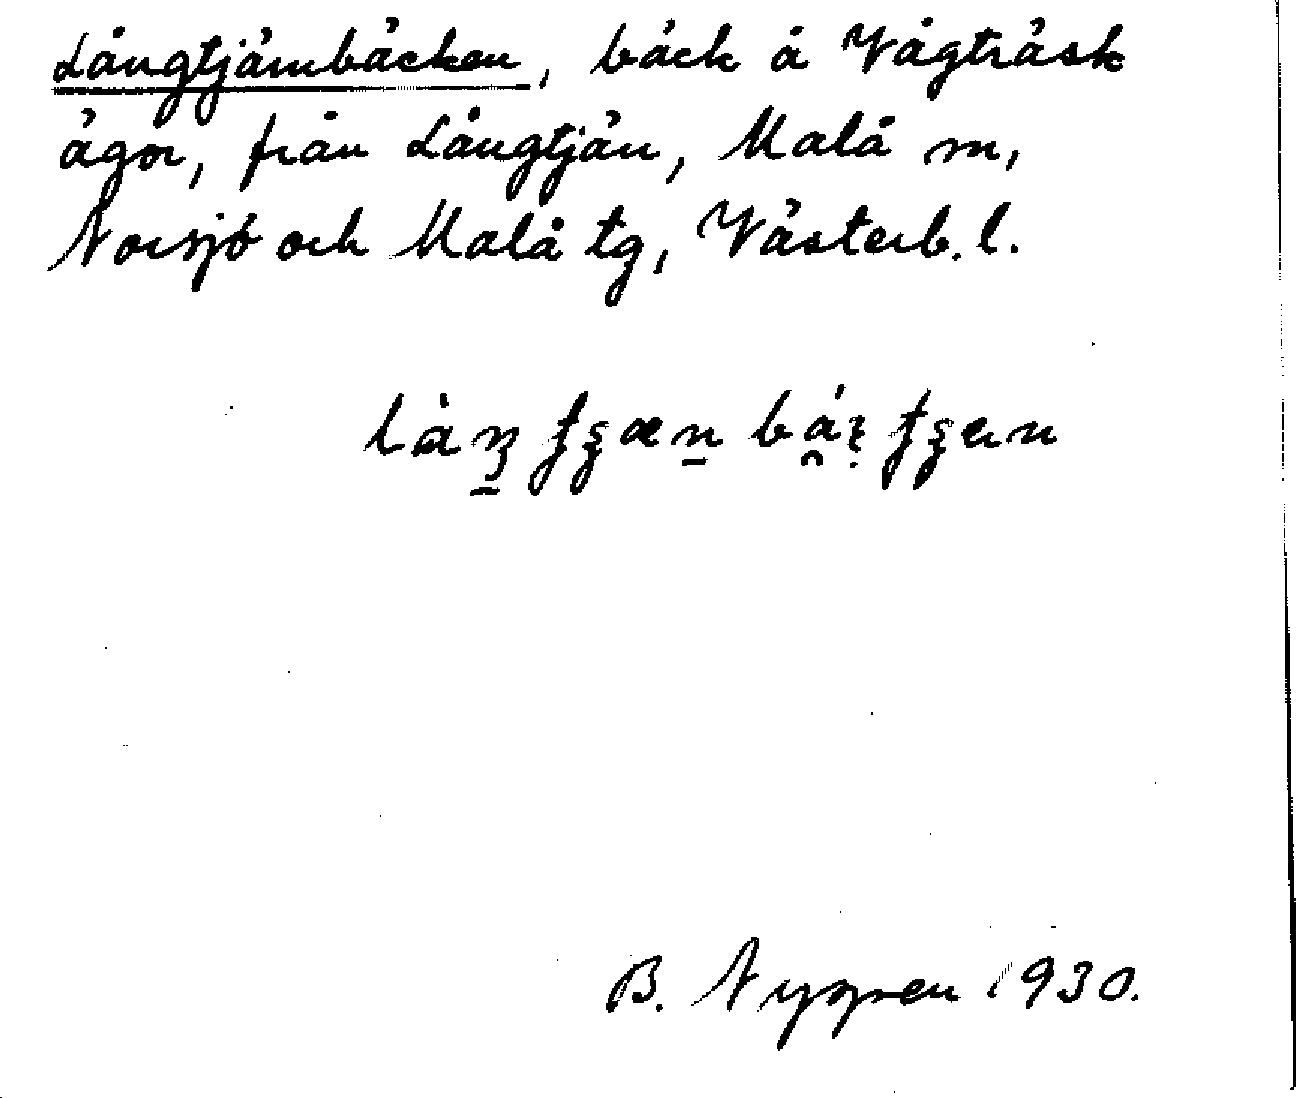 Långtjärnbäcken, bäck å Vägträsk
ägor, från Långtjärn, Malå sn,
Norsjö och Malå tg, Västerb. l.
B. Nygren 1930.